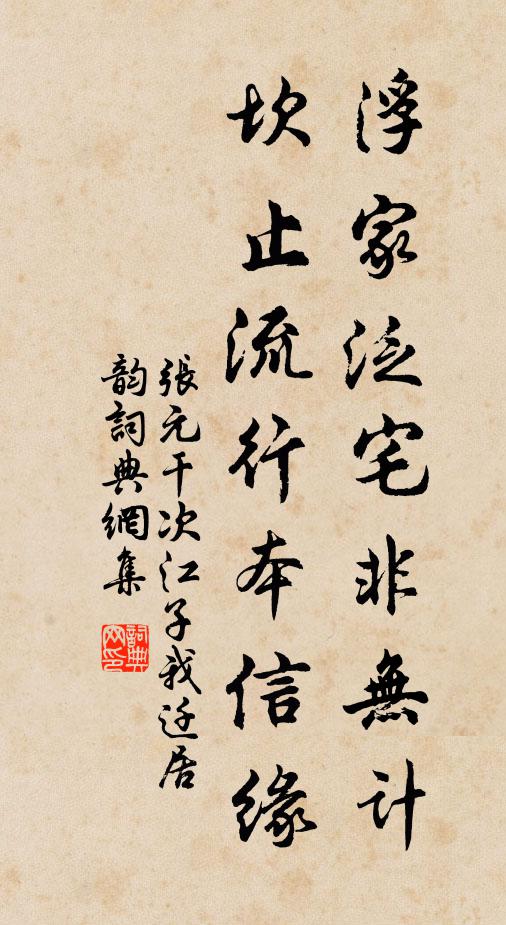 浮家泛宅非無計
坎止流行本信緣
張元干次江子我迁居
韵詞典網集
詞典網印